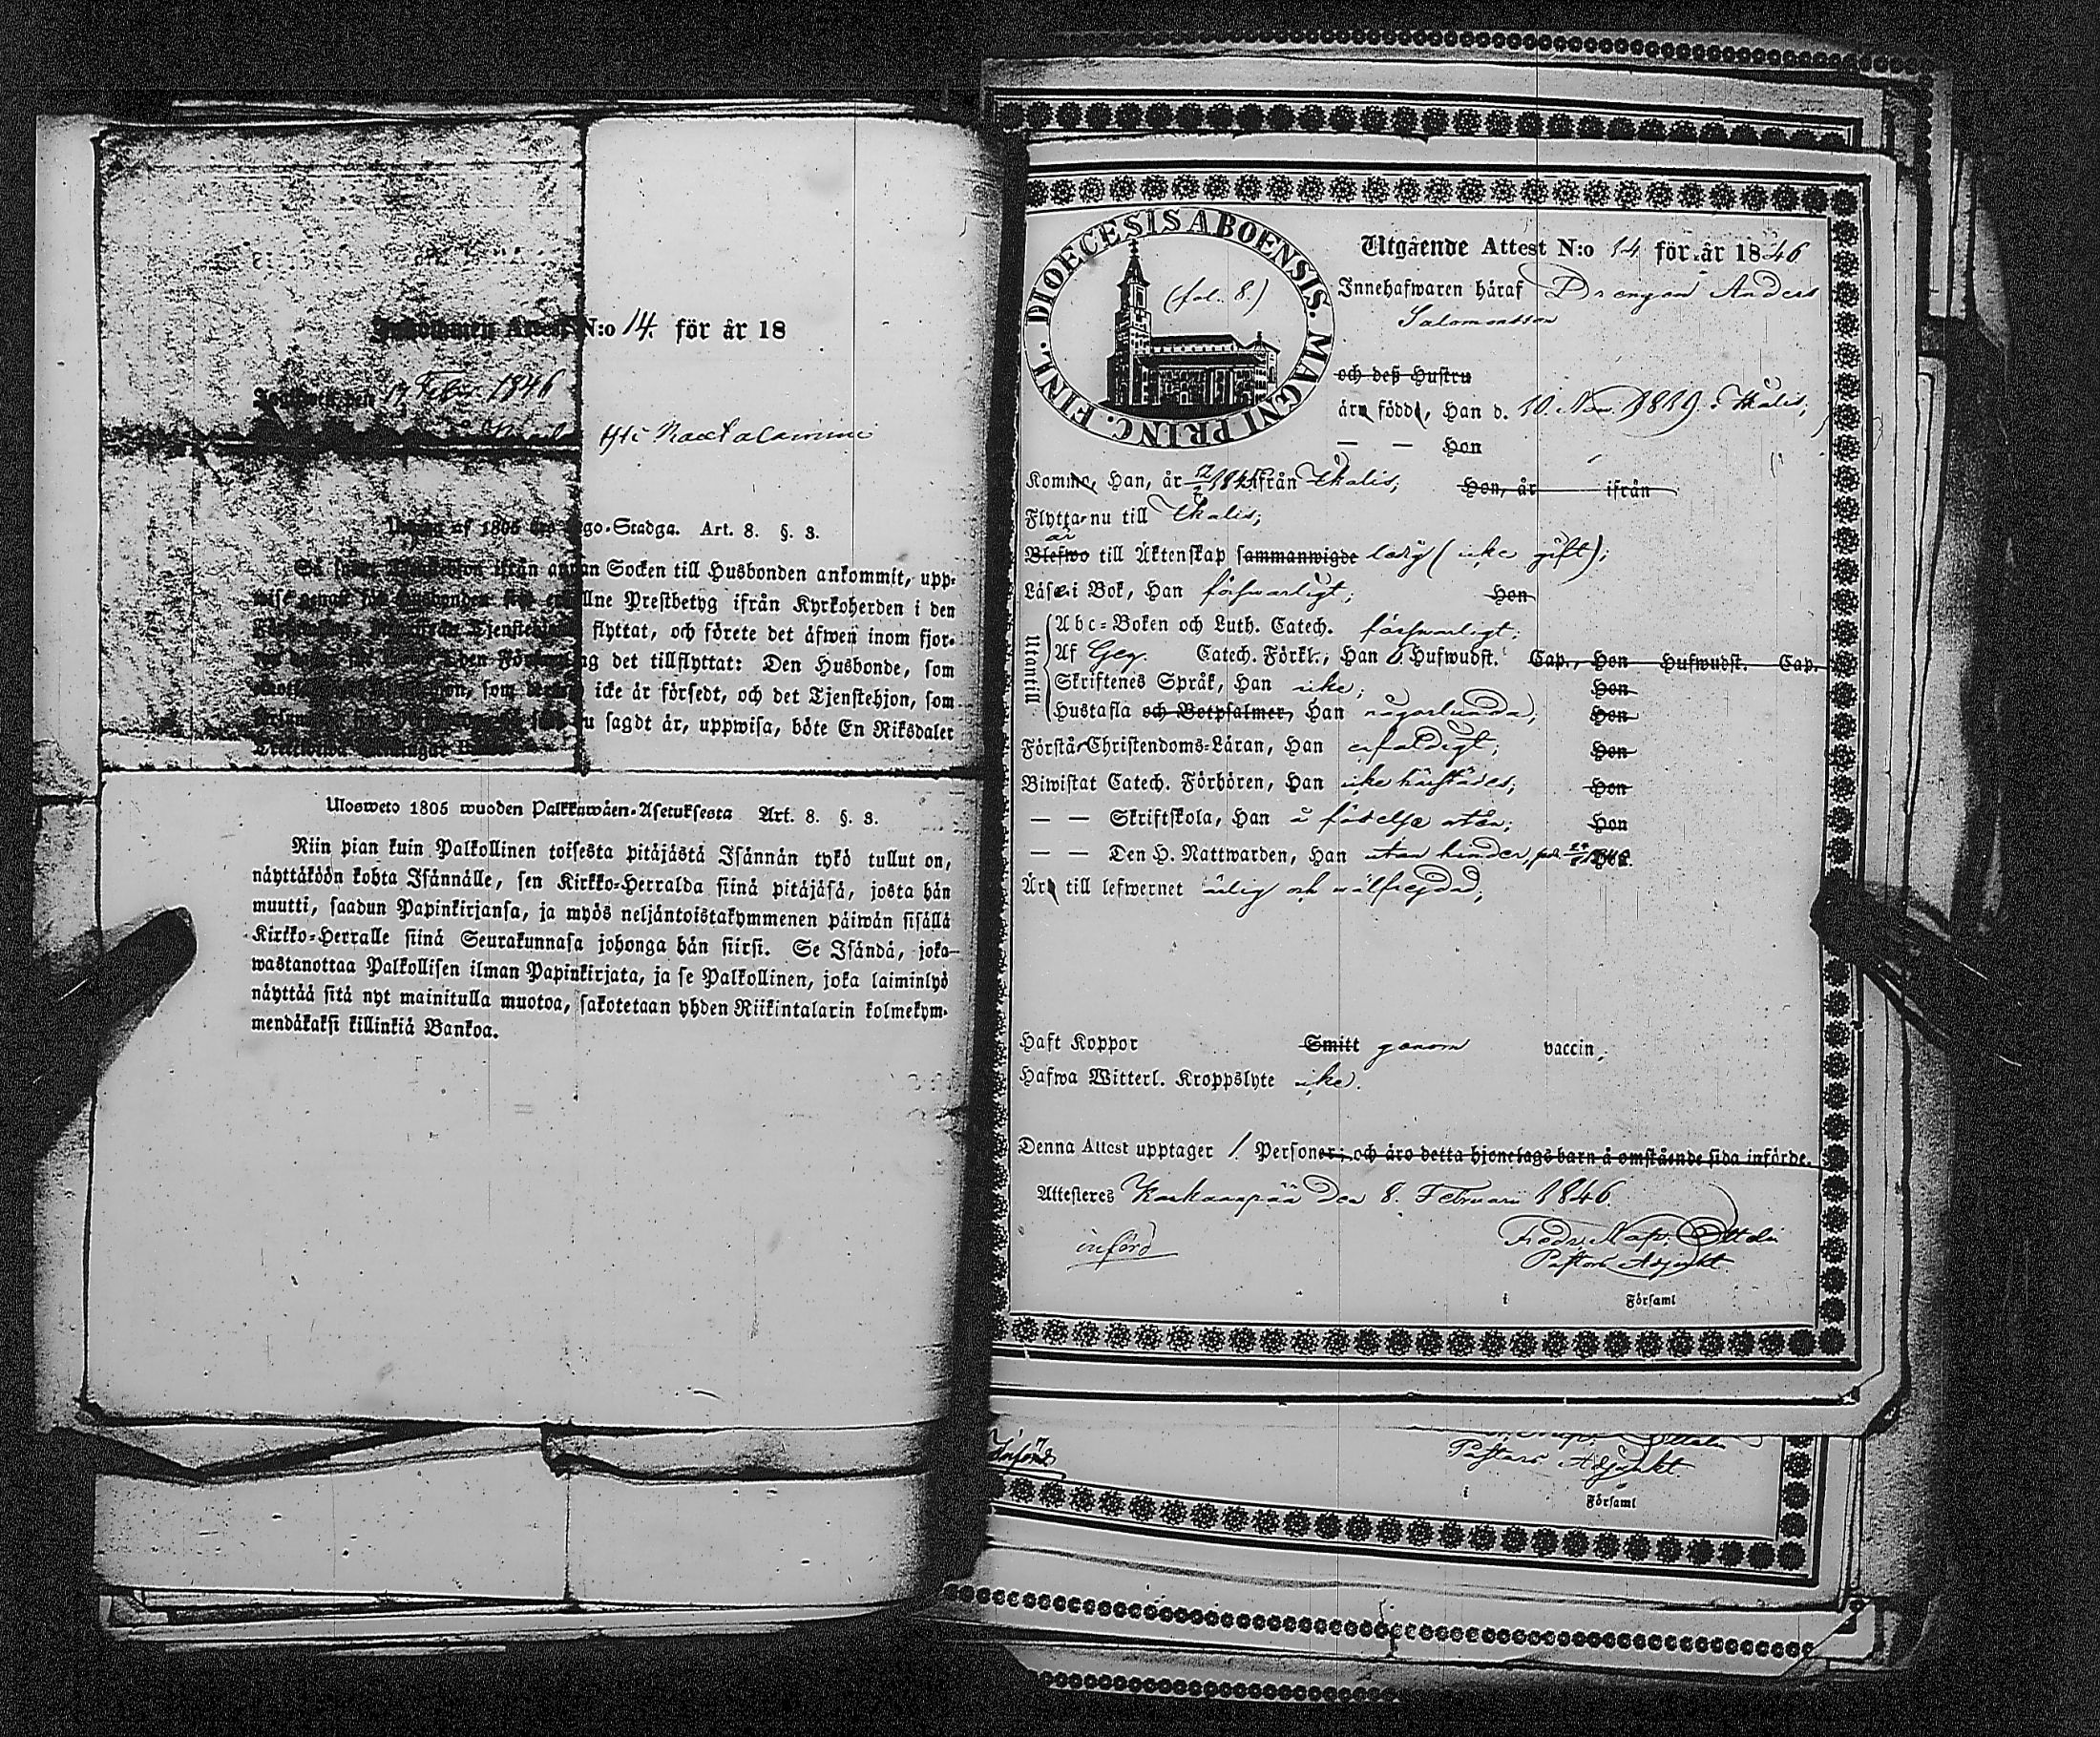 N:o 14. för år 18
den 19 Febr. 1846
af 1805 go-Stadga. Art. 8. §. 3.
ifrån annan Socken till Husbonden ankommit, upp-
Prestbetyg ifrån Kyrkoherden i den
flyttat, och förete det äfwen inom fjor-
det tillflyttat: Den Husbonde, som
som icke är försedt, och det Tjenstehjon, som
sagdt är, uppwisa, böte En Riksdaler
Ulosweto 1805 wuoden Palkkawäen-Asetuksesta Art. 8. §. 3.
Niin pian kuin Palkollinen toisesta pitäjästä Isännän tykö tullut on,
näyttäköön kohta Isännälle, sen Kirkko-Herralda siinä pitäjäsä, josta hän
muutti, saadun Papinkirjansa, ja myös neljäntoistakymmenen päiwän sisällä
Kirkko-Herralle siinä Seurakunnasa johonga hän siirsi. Se Isändä, joka
wastanottaa Palkollisen ilman Papinkirjata, ja se Palkollinen, joka laiminlyö
näyttää sitä nyt mainitulla muotoa, sakotetaan yhden Riikintalarin kolmekym-
mendäkaksi killinkiä Bankoa.
DIOECESIS ABOENSIS. MAGNI PRINC. FINL.
(fol. 8.)
Utgående Attest N:o 14 för år 1846
Innehafwaren häraf Drengen Anders
Salomonsson
och deß Hustru
äro födde, Han d. 10. Nov. 1819 i Ikalis,
— — Hon
Komne, Han, år ifrån Ikalis; Hon, år ifrån
Flytta nu till Ikalis;
är
Blefwo till Äktenskap sammanwigde ledig (icke gift);
Läser i Bok, Han förswarligt; Hon
Utantill
Abc-Boken och Luth. Catech. förswarligt;
Af Catech. Förkl., Han Hufwudst. Cap., Hon Hufwudst. Cap.
Skriftenes Språk, Han icke; Hon
Hustafla och Botpsalmer, Han någorlunda; Hon
Förstår Christendoms-Läran, Han enfaldigt; Hon
Biwistat Catech. Förhören, Han icke härstädes; Hon
— — Skriftskola, Han å födelse orten; Hon
— — Den H. Nattwarden, Han utan hinder, Hon
Äro till lefwernet ärlig och wälfrejdad;
Haft Koppor Smitt genom vaccin.
Hafwa Witterl. Kroppslyte icke.
Denna Attest upptager 1. Personer; och äro detta hjonelags barn å omstående sida införde.
Attesteres Kankaanpää den 8. Februarii 1846.
införd
Pastors Adjunkt.
i Församl
Införd
Pastors Adjunkt.
i Församl